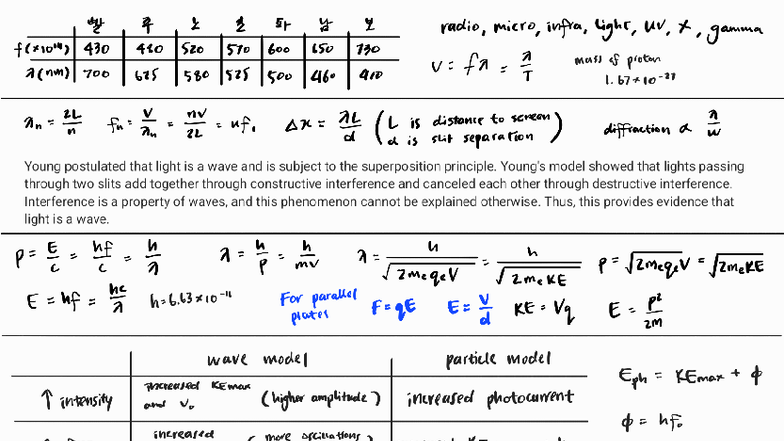 빨 주 노 초 파 남 보
f(×10¹²) 430 480 520 570 600 650 730
λ(nm) 700 625 580 525 500 460 410
radio, micro, infra, light, uv, x, gamma
v = fλ = λ/T
mass of proton
1.67×10⁻²⁷
λn = 2L/n fn = v/λn = nv/2L = nf₁ Δx = λL/d (L is distance to screen
d is slit separation)
diffraction α λ/w
Young postulated that light is a wave and is subject to the superposition principle. Young's model showed that lights passing
through two slits add together through constructive interference and canceled each other through destructive interference.
Interference is a property of waves, and this phenomenon cannot be explained otherwise. Thus, this provides evidence that
light is a wave.
p = E/c = hf/c = h/λ λ = h/p = h/mv λ = h/√(2meqeV) = h/√(2meKE) p = √(2meqeV) = √(2meKE)
E = hf = hc/λ h=6.63×10
For parallel
plates
F=qE E = V/d KE = Vq E = p²/2m
wave model particle model
↑ intensity increased KEmax
and V₀ (higher amplitude) increased photocurrent
Eph = KEmax + ϕ
ϕ = hf₀
increased (more oscillations)